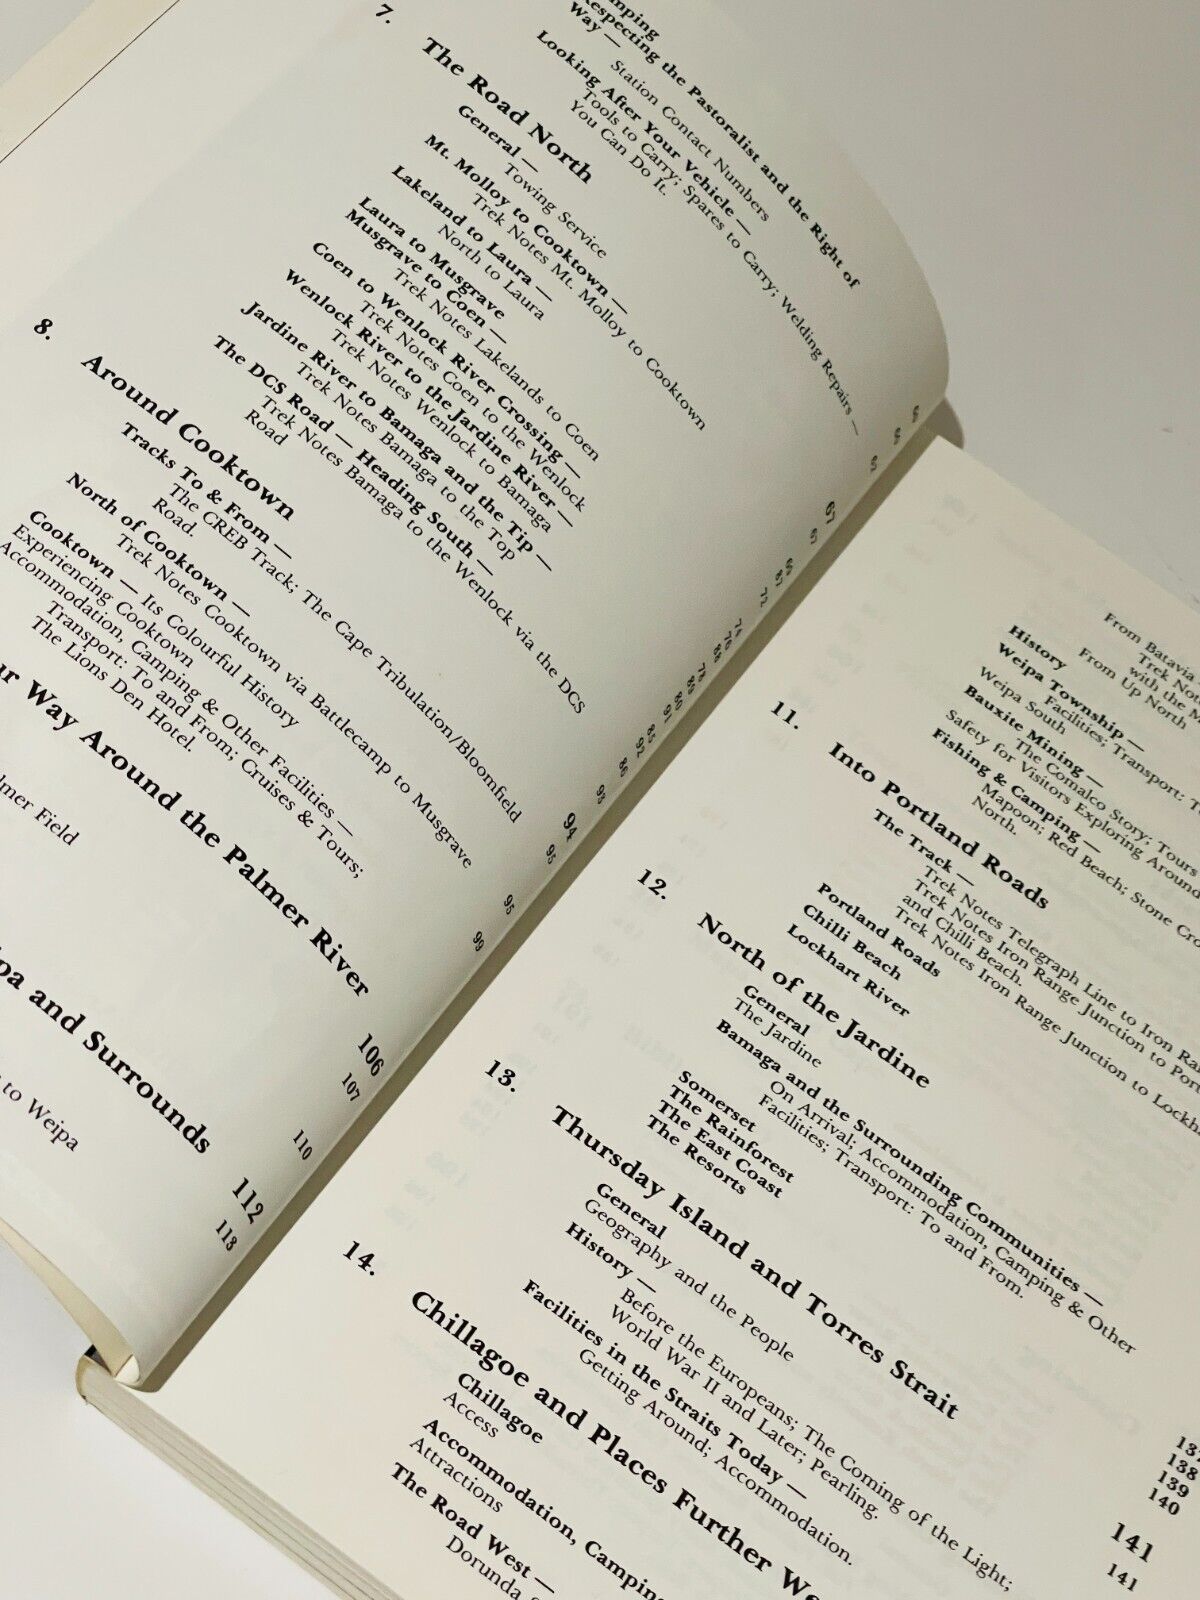 Respecting the Pastoralist and the Right of
Way —
Station Contact Numbers
Looking After Your Vehicle —
Tools to Carry; Spares to Carry; Welding Repairs —
You Can Do It.
7.
The Road North
67
General —
Towing Service
Mt. Molloy to Cooktown —
Trek Notes Mt. Molloy to Cooktown
Lakeland to Laura —
North to Laura
Laura to Musgrave
Musgrave to Coen —
Trek Notes Lakelands to Coen
Coen to Wenlock River Crossing —
Trek Notes Coen to the Wenlock
Wenlock River to the Jardine River —
Trek Notes Wenlock to Bamaga
Jardine River to Bamaga and the Tip —
Trek Notes Bamaga to the Top
The DCS Road — Heading South —
Trek Notes Bamaga to the Wenlock via the DCS
Road
8.
Around Cooktown
94
Tracks To & From —
95
The CREB Track; The Cape Tribulation/Bloomfield
Road.
North of Cooktown —
95
Trek Notes Cooktown via Battlecamp to Musgrave
Cooktown — Its Colourful History
99
Experiencing Cooktown
Accommodation, Camping & Other Facilities —
Transport: To and From; Cruises & Tours;
The Lions Den Hotel.
Way Around the Palmer River
106
107
Field
110
and Surrounds
112
113
to Weipa
From Batavia
Trek
with the
From Up North
History
Weipa Township —
Facilities; Transport:
Weipa South
Bauxite Mining —
The Comalco Story; Tours
Safety for Visitors Exploring Around
Fishing & Camping —
Mapoon; Red Beach; Stone
North.
11.
Into Portland Roads
The Track —
Trek Notes Telegraph Line to Iron
Trek Notes Iron Range Junction to
and Chilli Beach.
Trek Notes Iron Range Junction to
Portland Roads
Chilli Beach
Lockhart River
12.
North of the Jardine
General
The Jardine
Bamaga and the Surrounding Communities —
On Arrival; Accommodation, Camping & Other
Facilities; Transport: To and From.
Somerset
The Rainforest
The East Coast
The Resorts
137
138
139
140
13.
Thursday Island and Torres Strait
141
General
141
Geography and the People
History —
Before the Europeans; The Coming of the Light;
World War II and Later; Pearling.
Facilities in the Straits Today —
Getting Around; Accommodation.
14.
Chillagoe and Places Further
Chillagoe
Access
Accommodation,
Attractions
The Road West —
Dorunda